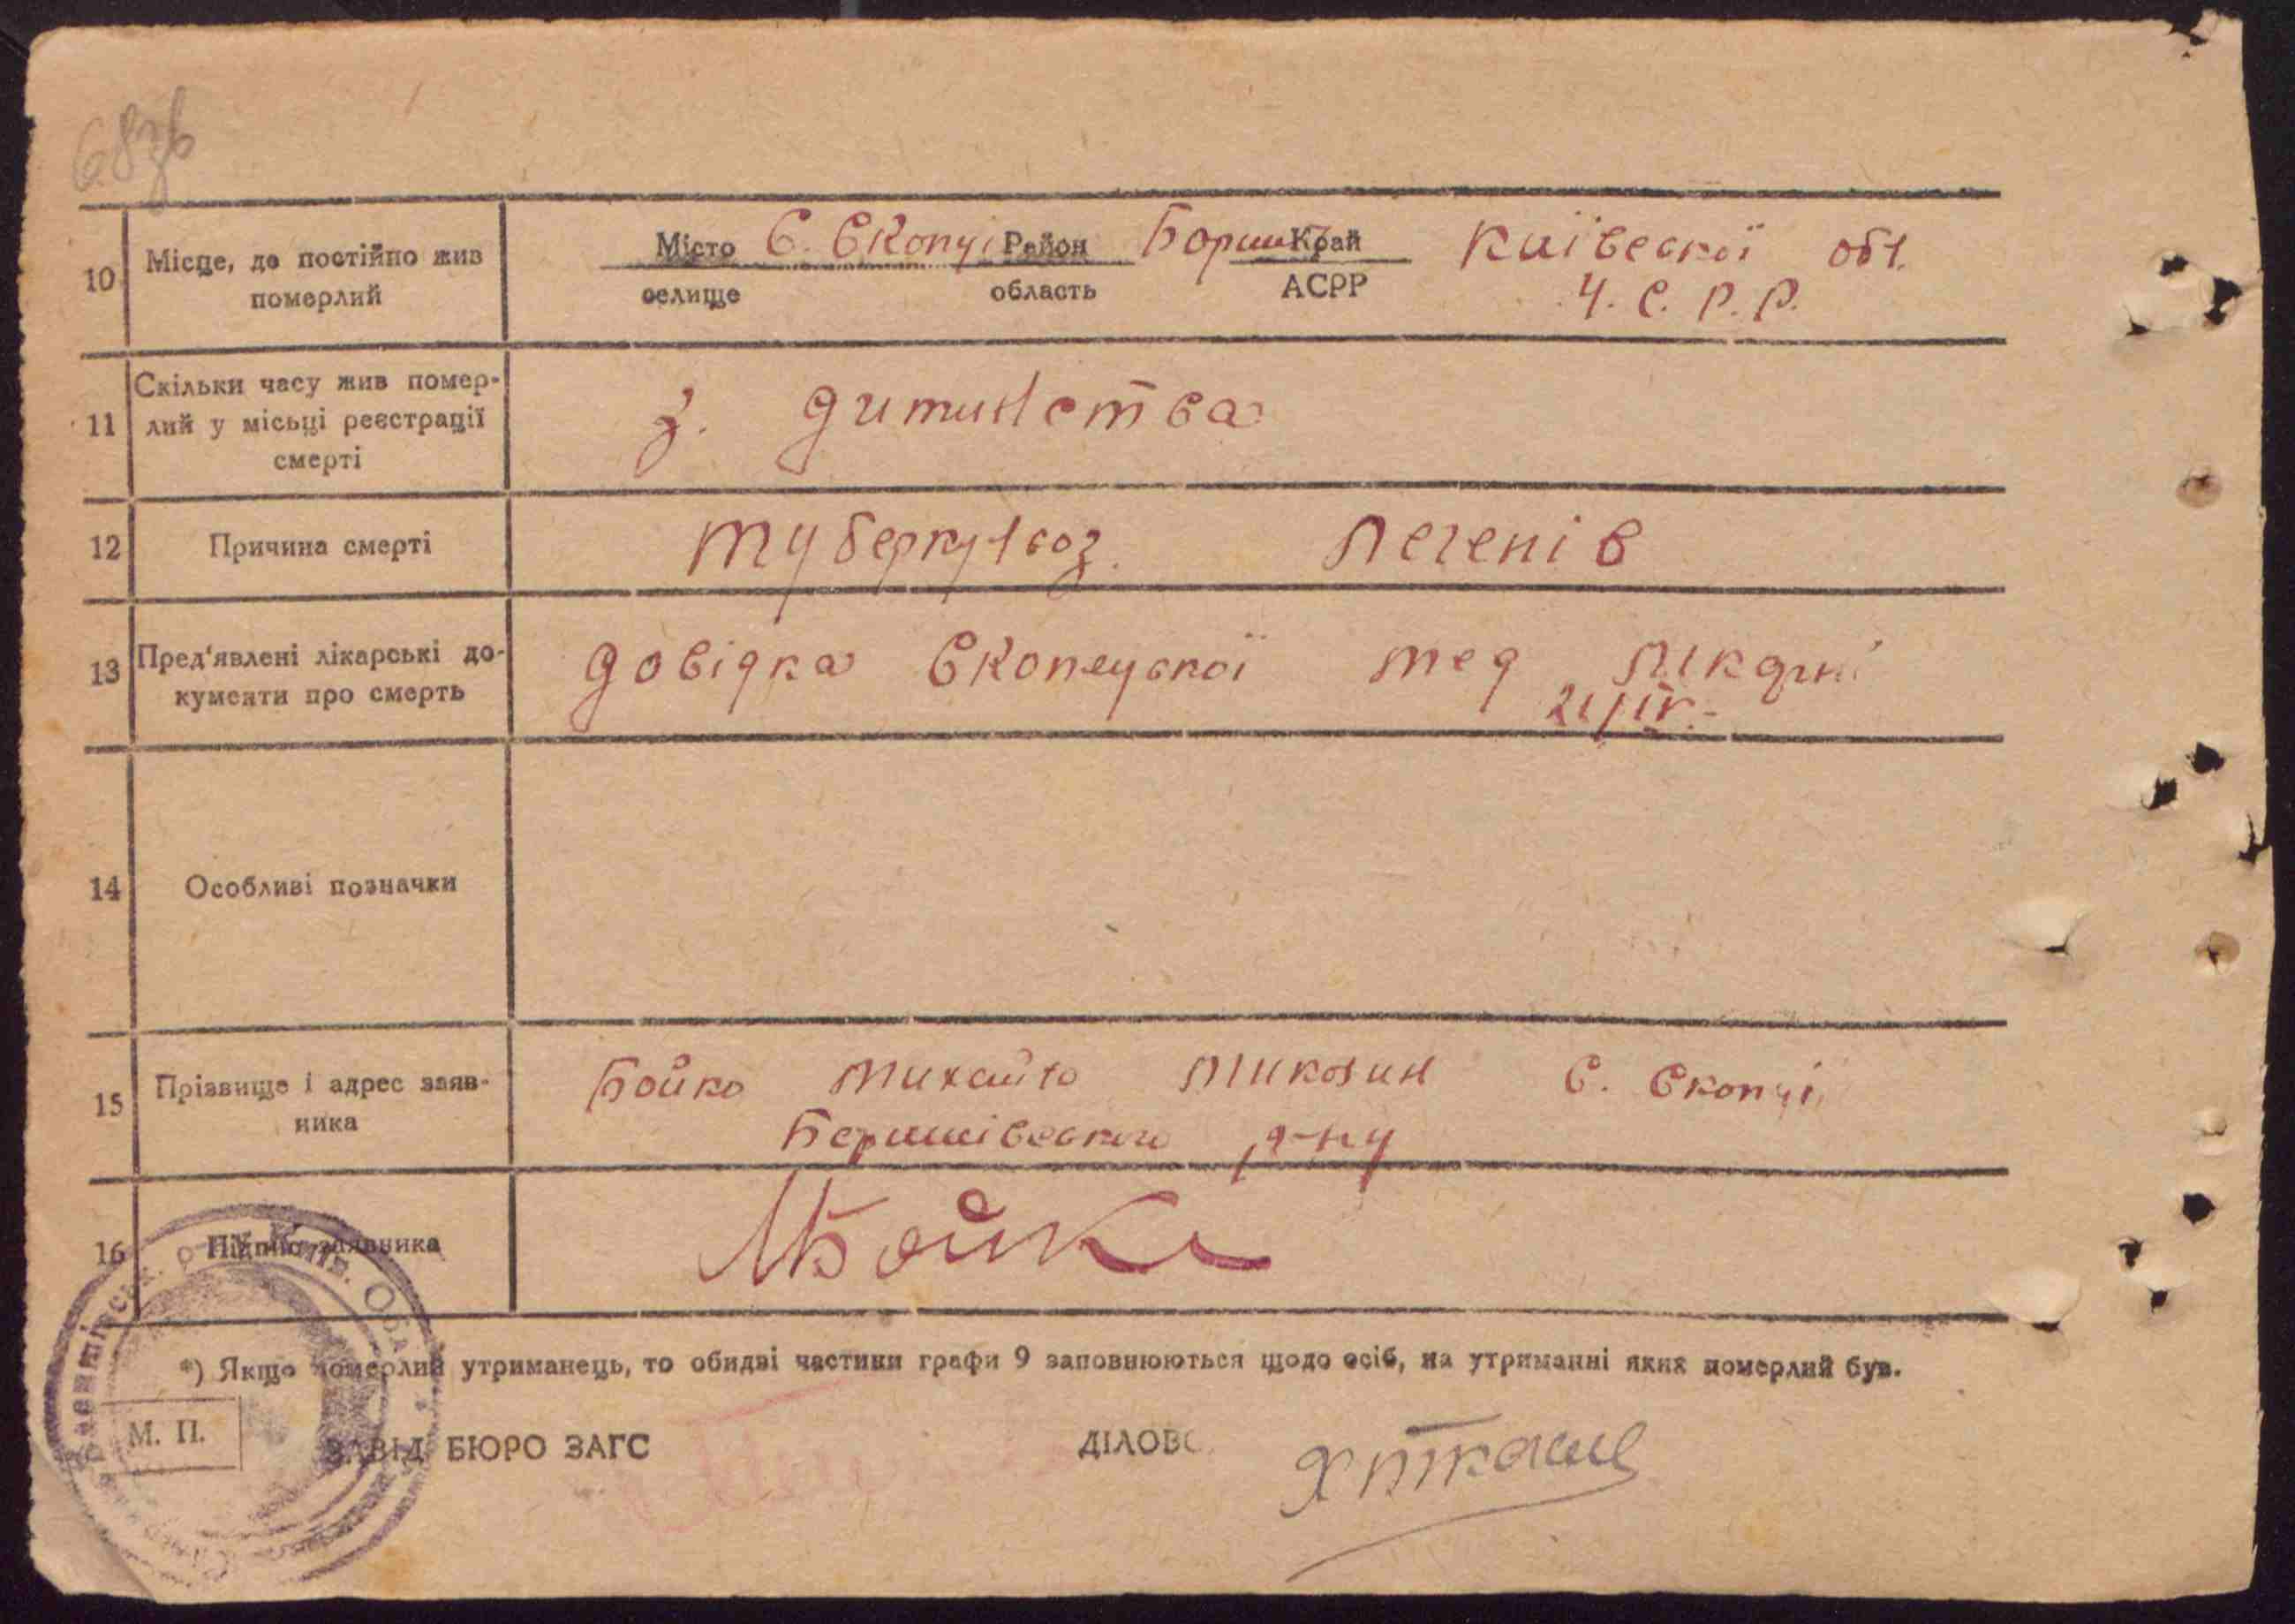 68зв
10 Місце, де постійно жив Місто С. Скопці Район Бориш Край Київської обл.
померлий селище область АСРР У. С. Р. Р.
Скільки часу жив помер-
11 лий у місьці реєстрації з. дитинства
смерті
12 Причина смерті туберкульоз. легенів
13 Пред'явлені лікарські до- довідка Скопецської мед лікарні
кументи про смерть 21/IV.-
14 Особливі позначки
15 Прізвище і адрес заяв- Бойко Михайло С. Скопці
ника Боришівського р-ну
16 Підпис заявника МБойко
*) Якщо померлий утриманець, то обидві частини графи 9 заповнюються щодо осіб, на утриманні яких померлий був.
М. П. ЗАВІД БЮРО ЗАГС ДІЛОВ